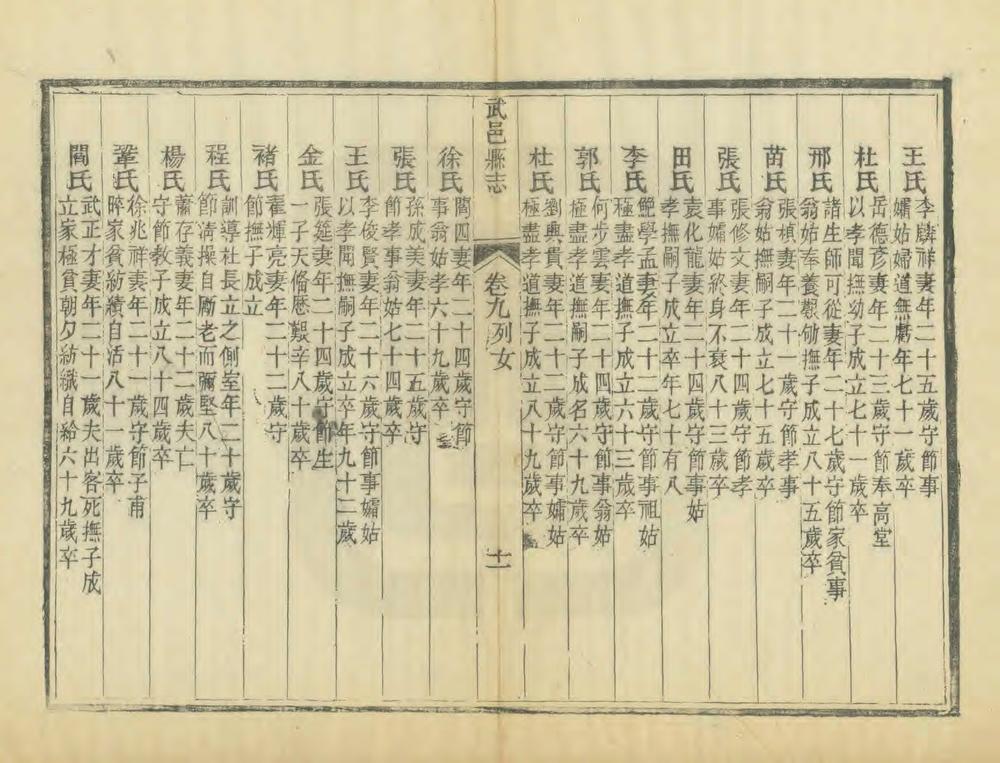 王氏 李麟祥妻年二十五歲守節事
孀姑婦道無虧年七十一歲卒
杜氏 岳德彥妻年二十三歲守節奉高堂
以孝聞撫幼子成立七十一歲卒
邢氏 諸生師可從妻年二十七歲守節家貧事
翁姑奉養懇撫子成立八十五歲卒
苗氏 張楨妻年二十一歲守節孝事
翁姑撫嗣子成立七十五歲卒
張氏 張修文妻年二十四歲守節孝
事孀姑終身不衰八十三歲卒
田氏 袁化龍妻年二十四歲守節事姑
孝撫嗣子成立卒年七十有八
李氏 鮑學孟妻年二十二歲守節事祖姑
極盡孝道撫子成立六十三歲卒
郭氏 何步雲妻年二十四歲守節事翁姑
極盡孝道撫嗣子成名六十九歲卒
杜氏 劉興貴妻年二十二歲守節事孀姑
極盡孝道撫子成立八十九歲卒
武邑縣志 卷九列女 十一
徐氏 閻四妻年二十四歲守節
事翁姑孝六十九歲卒
張氏 孫成美妻年二十五歲守
節孝事翁姑七十四歲卒
王氏 李俊賢妻年二十六歲守節事孀姑
以孝聞撫嗣子成立卒年九十二歲
金氏 張筵妻年二十四歲守節生
一子夭俻歷艱辛八十歲卒
褚氏 翟輝亮妻年二十二歲守
節撫子成立
程氏 訓導杜長立之側室年二十歲守
節清操自勵老而彌堅八十歲卒
楊氏 蕭存義妻年二十二歲夫亡
守節教子成立八十四歲卒
鞏氏 徐兆祥妻年二十一歲守節子甫
晬家貧紡績自活八十一歲卒
閻氏 武正才妻年二十一歲夫出客死撫子成
立家極貧朝夕紡織自給六十九歲卒